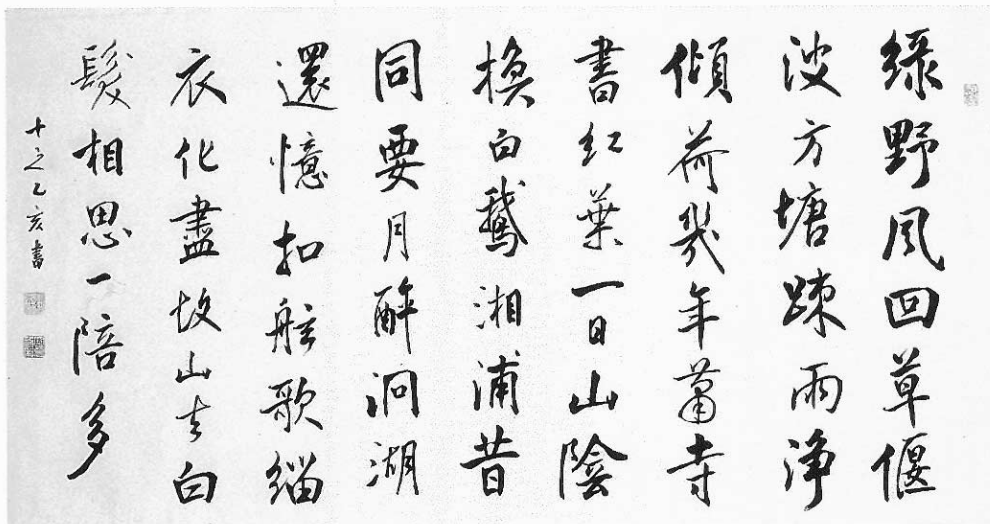 綠野風回草偃
波方塘踈雨淨
傾荷幾年蕭寺
書紅葉一日山陰
換白鵝湘浦昔
同要月醉洞湖
還憶扣舷歌緇
衣化盡故山去白
髮相思一陪多
乙亥書